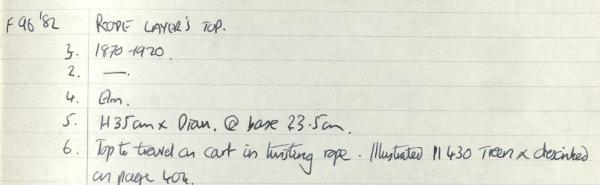 F 96 '82 ROPE LAYER'S TOP.
3. 1870-1920.
2. —.
4. Elm.
5. H 35cm x Diam. @ base 23.5cm.
6. Top to travel on cart in twisting rope. Illustrated Pl 430 Treen & described
on page 404.